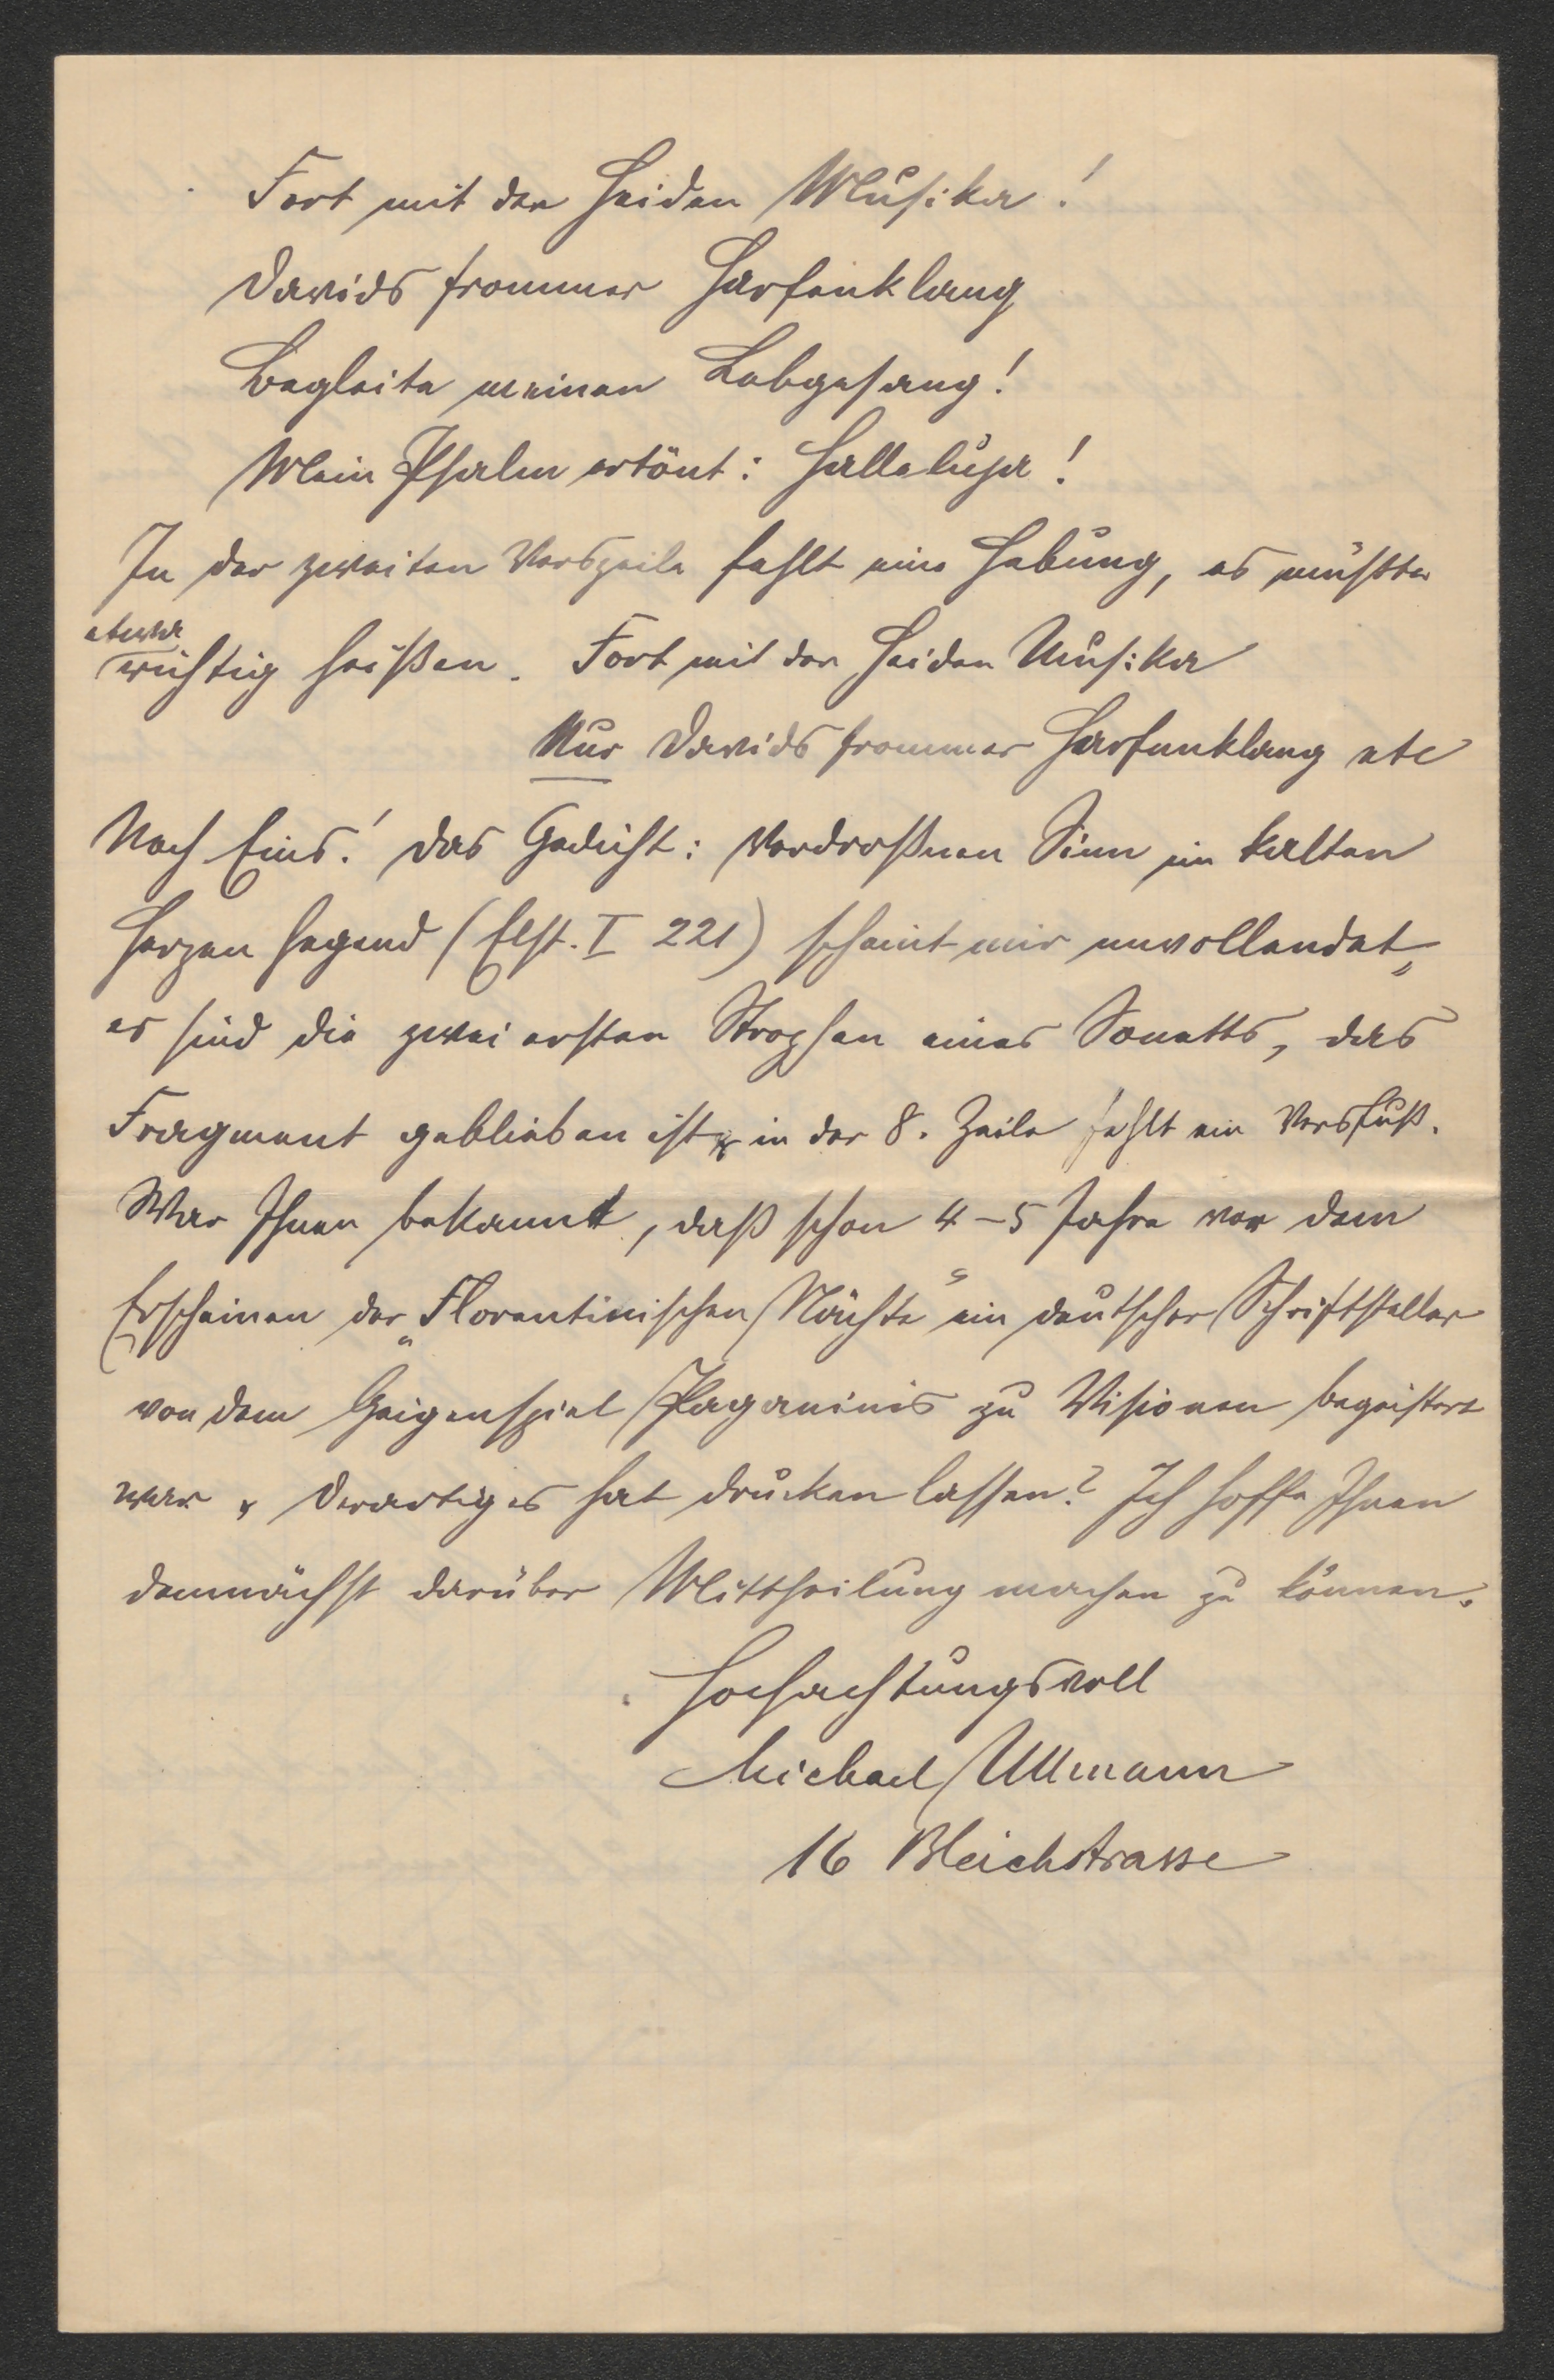 Fort mit der Heiden Musika!
Davids frommer Harfenklang
Begleite meinen Lobgesang!
Mein Psalm ertönt: Halleluja!
In der zweiten Verszeile fehlt eine Hebung, es müßte
etwa
richtig heißen. Fort mit der Heiden Musika
Nur Davids frommer Harfenklang etc
Noch Eins! Das Gedicht: Verdroßnen Sinn im kalten
Herzen hegend (Elst. I 221) scheint mir unvollendet,
es sind die zwei ersten Strophen eines Sonetts, das
Fragment geblieben ist, in der 8. Zeile fehlt ein Versfuß.
War Ihnen bekannt, daß schon 4-5 Jahre vor dem
Erscheinen der „Florentinischen Nächte“ ein deutscher Schriftsteller
von dem Geigenspiel Paganinis zu Visionen begeistert
war & Derartiges hat drucken lassen? Ich hoffe Ihnen
demnächst darüber Mittheilung machen zu können.
Hochachtungsvoll
Michael Ullmann
16 Bleichstrasse